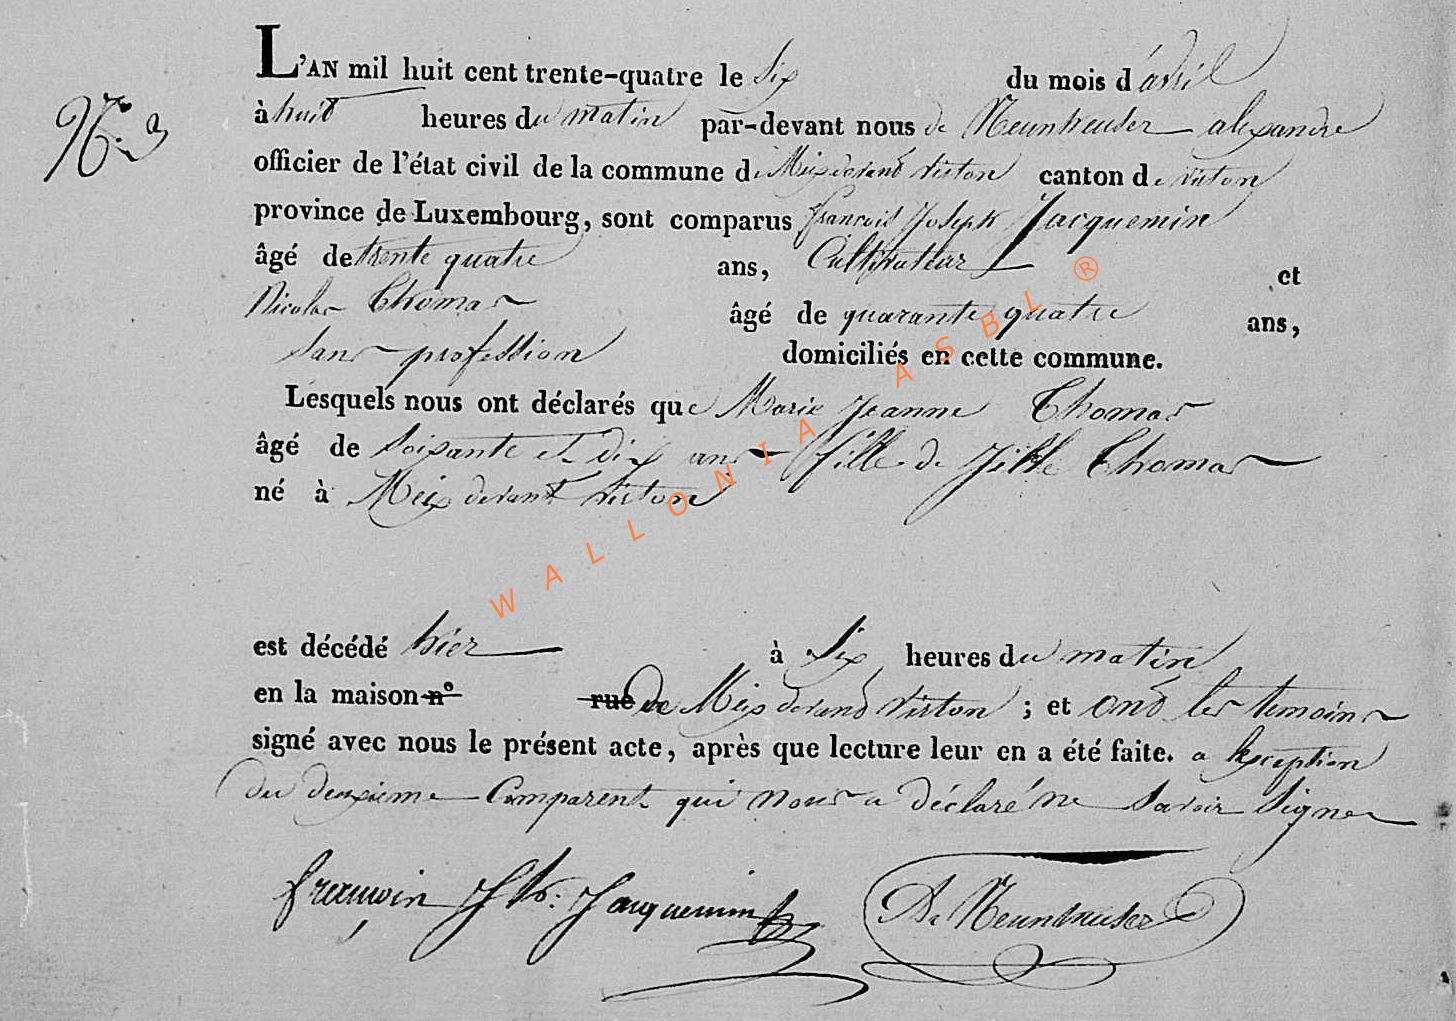 N.° 3
L'AN mil huit cent trente-quatre le six du mois d'avril
à huit heures du matin par-devant nous de Neunheuser alexandre
officier de l'état civil de la commune de Meix devant virton canton de virton
province de Luxembourg, sont comparus françois Joseph Jacquemin
âgé de trente quatre ans, Cultivateur et
Nicolas Thomas âgé de quarante quatre ans,
sans profession domiciliés en cette commune.
Lesquels nous ont déclarés que Marie Jeanne Thomas
âgé de soixante et dix ans fille de Thomas
né à Meix devant virton
est décédé hier à six heures du matin
en la maison n° rue de Meix devand Virton ; et ond les temoins
signé avec nous le présent acte, après que lecture leur en a été faite. a lexception
du deuxieme Comparent qui nous a déclaré ne savoir signer
françoin Jh: Jacquemin
De Neunheuser
WALLONIA ASBL ®